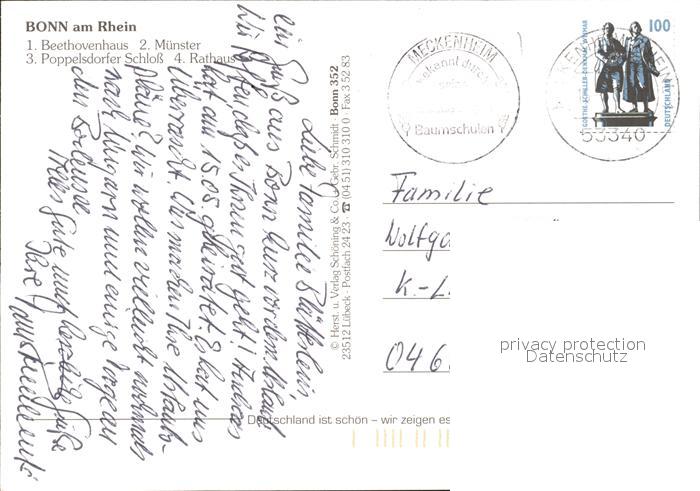 BONN am Rhein
1. Beethovenhaus 2. Münster
3. Poppelsdorfer Schloß 4. Rathaus
Liebe Familie
ein Gruß aus Bonn kurz vor dem Urlaub
Wir hoffen daß es Ihnen gut geht! Andreas
hat am 15.05 geheiratet. Es hat uns
überrascht. Was machen Ihre Urlaubs-
pläne? Wir wollen vielleicht nochmals
nach Ungarn und einige Tage an
den Bodensee.
Alles Gute und herzliche Grüße
Ihre
© Herst. u. Verlag Schöning & Co. u. Gebr. Schmidt Bonn 352
23512 Lübeck · Postfach 24 23 · ☎ (04 51) 310 310 0 · Fax 3 52 83
MECKENHEIM
bekannt durch
seine
Baumschulen
MECKENHEIM, RHEINL
53340
100
GOETHE-SCHILLER-DENKMAL WEIMAR
DEUTSCHLAND
Familie
Wolfga
K.-L
046
privacy protection
Datenschutz
Deutschland ist schön – wir zeigen es